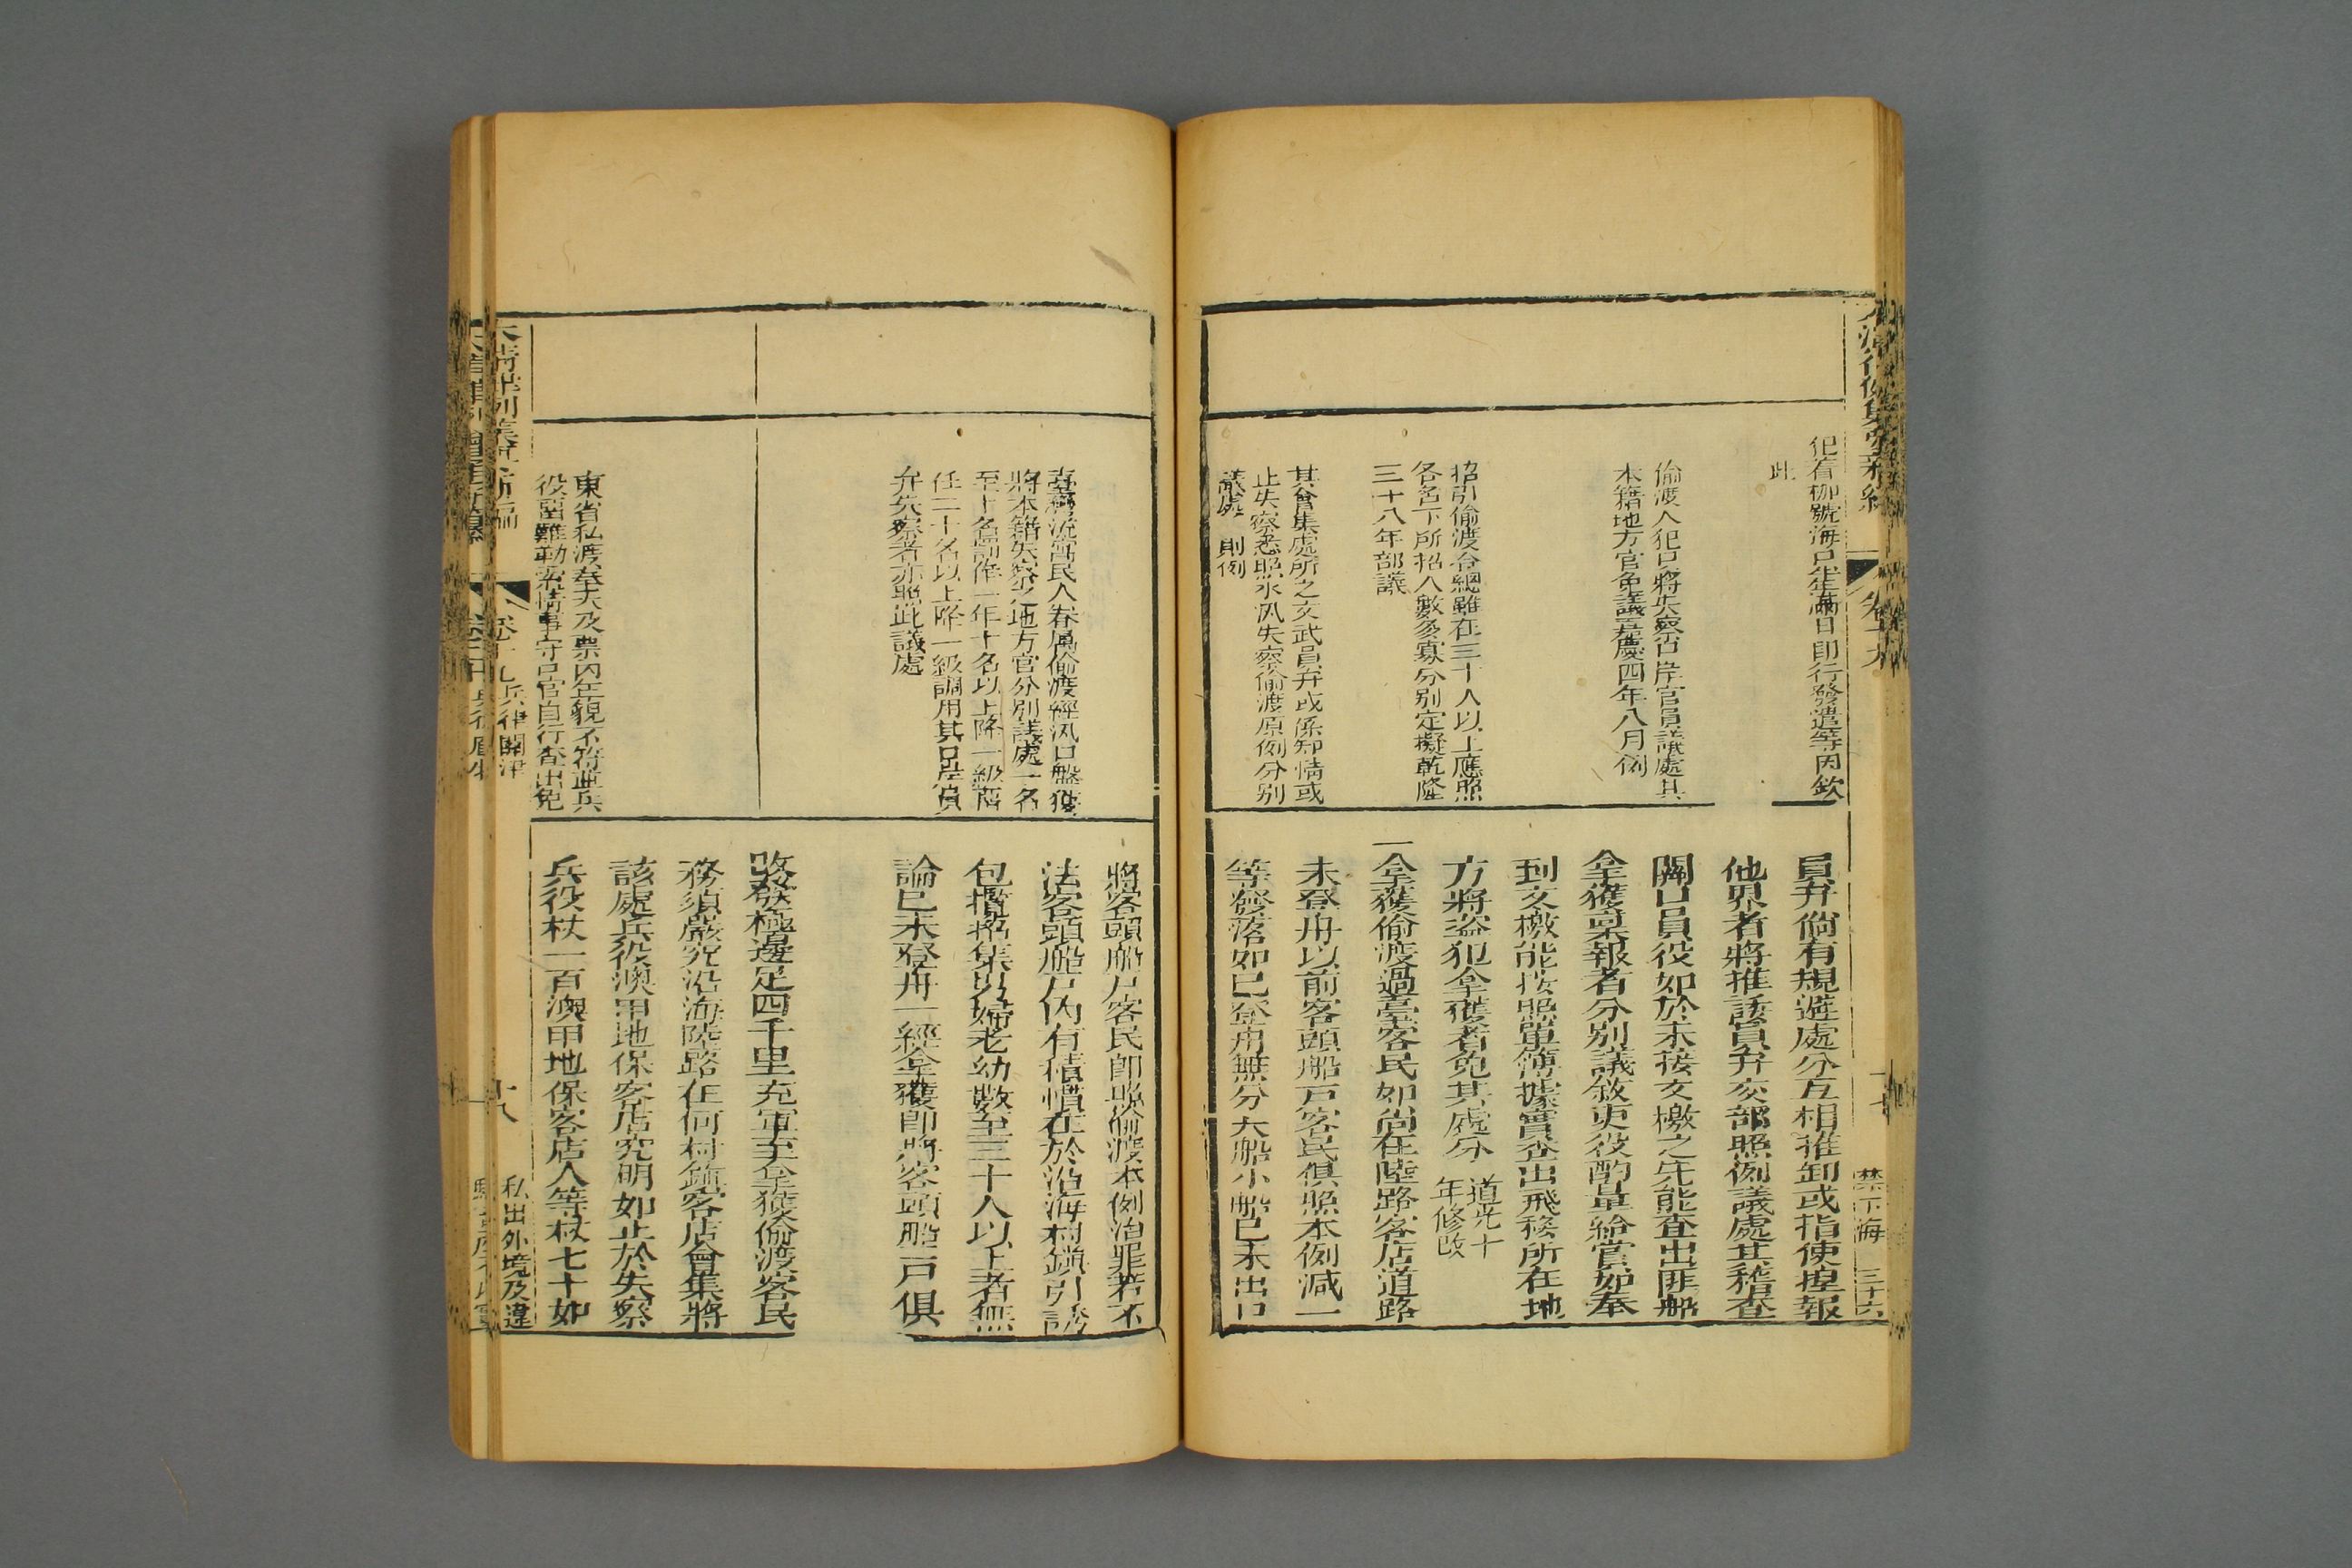 犯有枷號海口生滿日即行發遣等因欽
此
偷渡人犯只將失察沿岸官員議處其
本籍地方官免議嘉慶四年八月例
招引偷渡台灣雖在三十人以上應照
各名下所招人數多寡分別定擬乾隆
三十八年部議
其會集處所之文武員弁或係知情或
止失察悉照水汛失察偷渡原例分別
議處 則例
員弁倘有規避處分互相推卸或指使捏報
他界者將推諉員弁交部照例議處其稽查
關口員役如於未接文檄之先能查出匪船
拿獲稟報者分別議敘吏役酌量給賞如奉
到文檄能按照單簿據實查出飛移所在地
方將盜犯拿獲者免其處分 道光十
年修改
一拿獲偷渡過臺客民如尚在陸路客店道路
未登舟以前客頭船戶客民俱照本例減一
等發落如已登舟無分大船小船已未出口
臺灣流寓民人眷屬偷渡經汛口盤獲
將本籍失察之地方官分別議處一名
至十名罰俸一年十名以上降一級留
任二十名以上降一級調用其口岸員
弁失察者亦照此議處
東省私渡奉天及票內年貌不符並兵
役留難勒索情事守口官自行查出免
將客頭船戶客民即照偷渡本例治罪若不
法客頭船戶內有積慣在於沿海村鎮引誘
包攬招集男婦老幼數至三十人以上者無
論已未登舟一經拿獲即將客頭船戶俱
改發極邊足四千里充軍至拿獲偷渡客民
務須嚴究沿海陸路在何村鎮客店會集將
該處兵役澳甲地保客店究明如止於失察
兵役杖一百澳甲地保客店人等杖七十如
私出外境及違